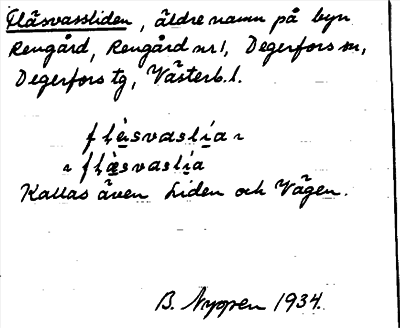 Fläsvassliden, äldre namn på byn
Rengård, Rengård nr 1, Degerfors sn,
Degerfors tg, Västerb. l.
Kallas även Liden och Vägen.
B. Nyppen 1934.